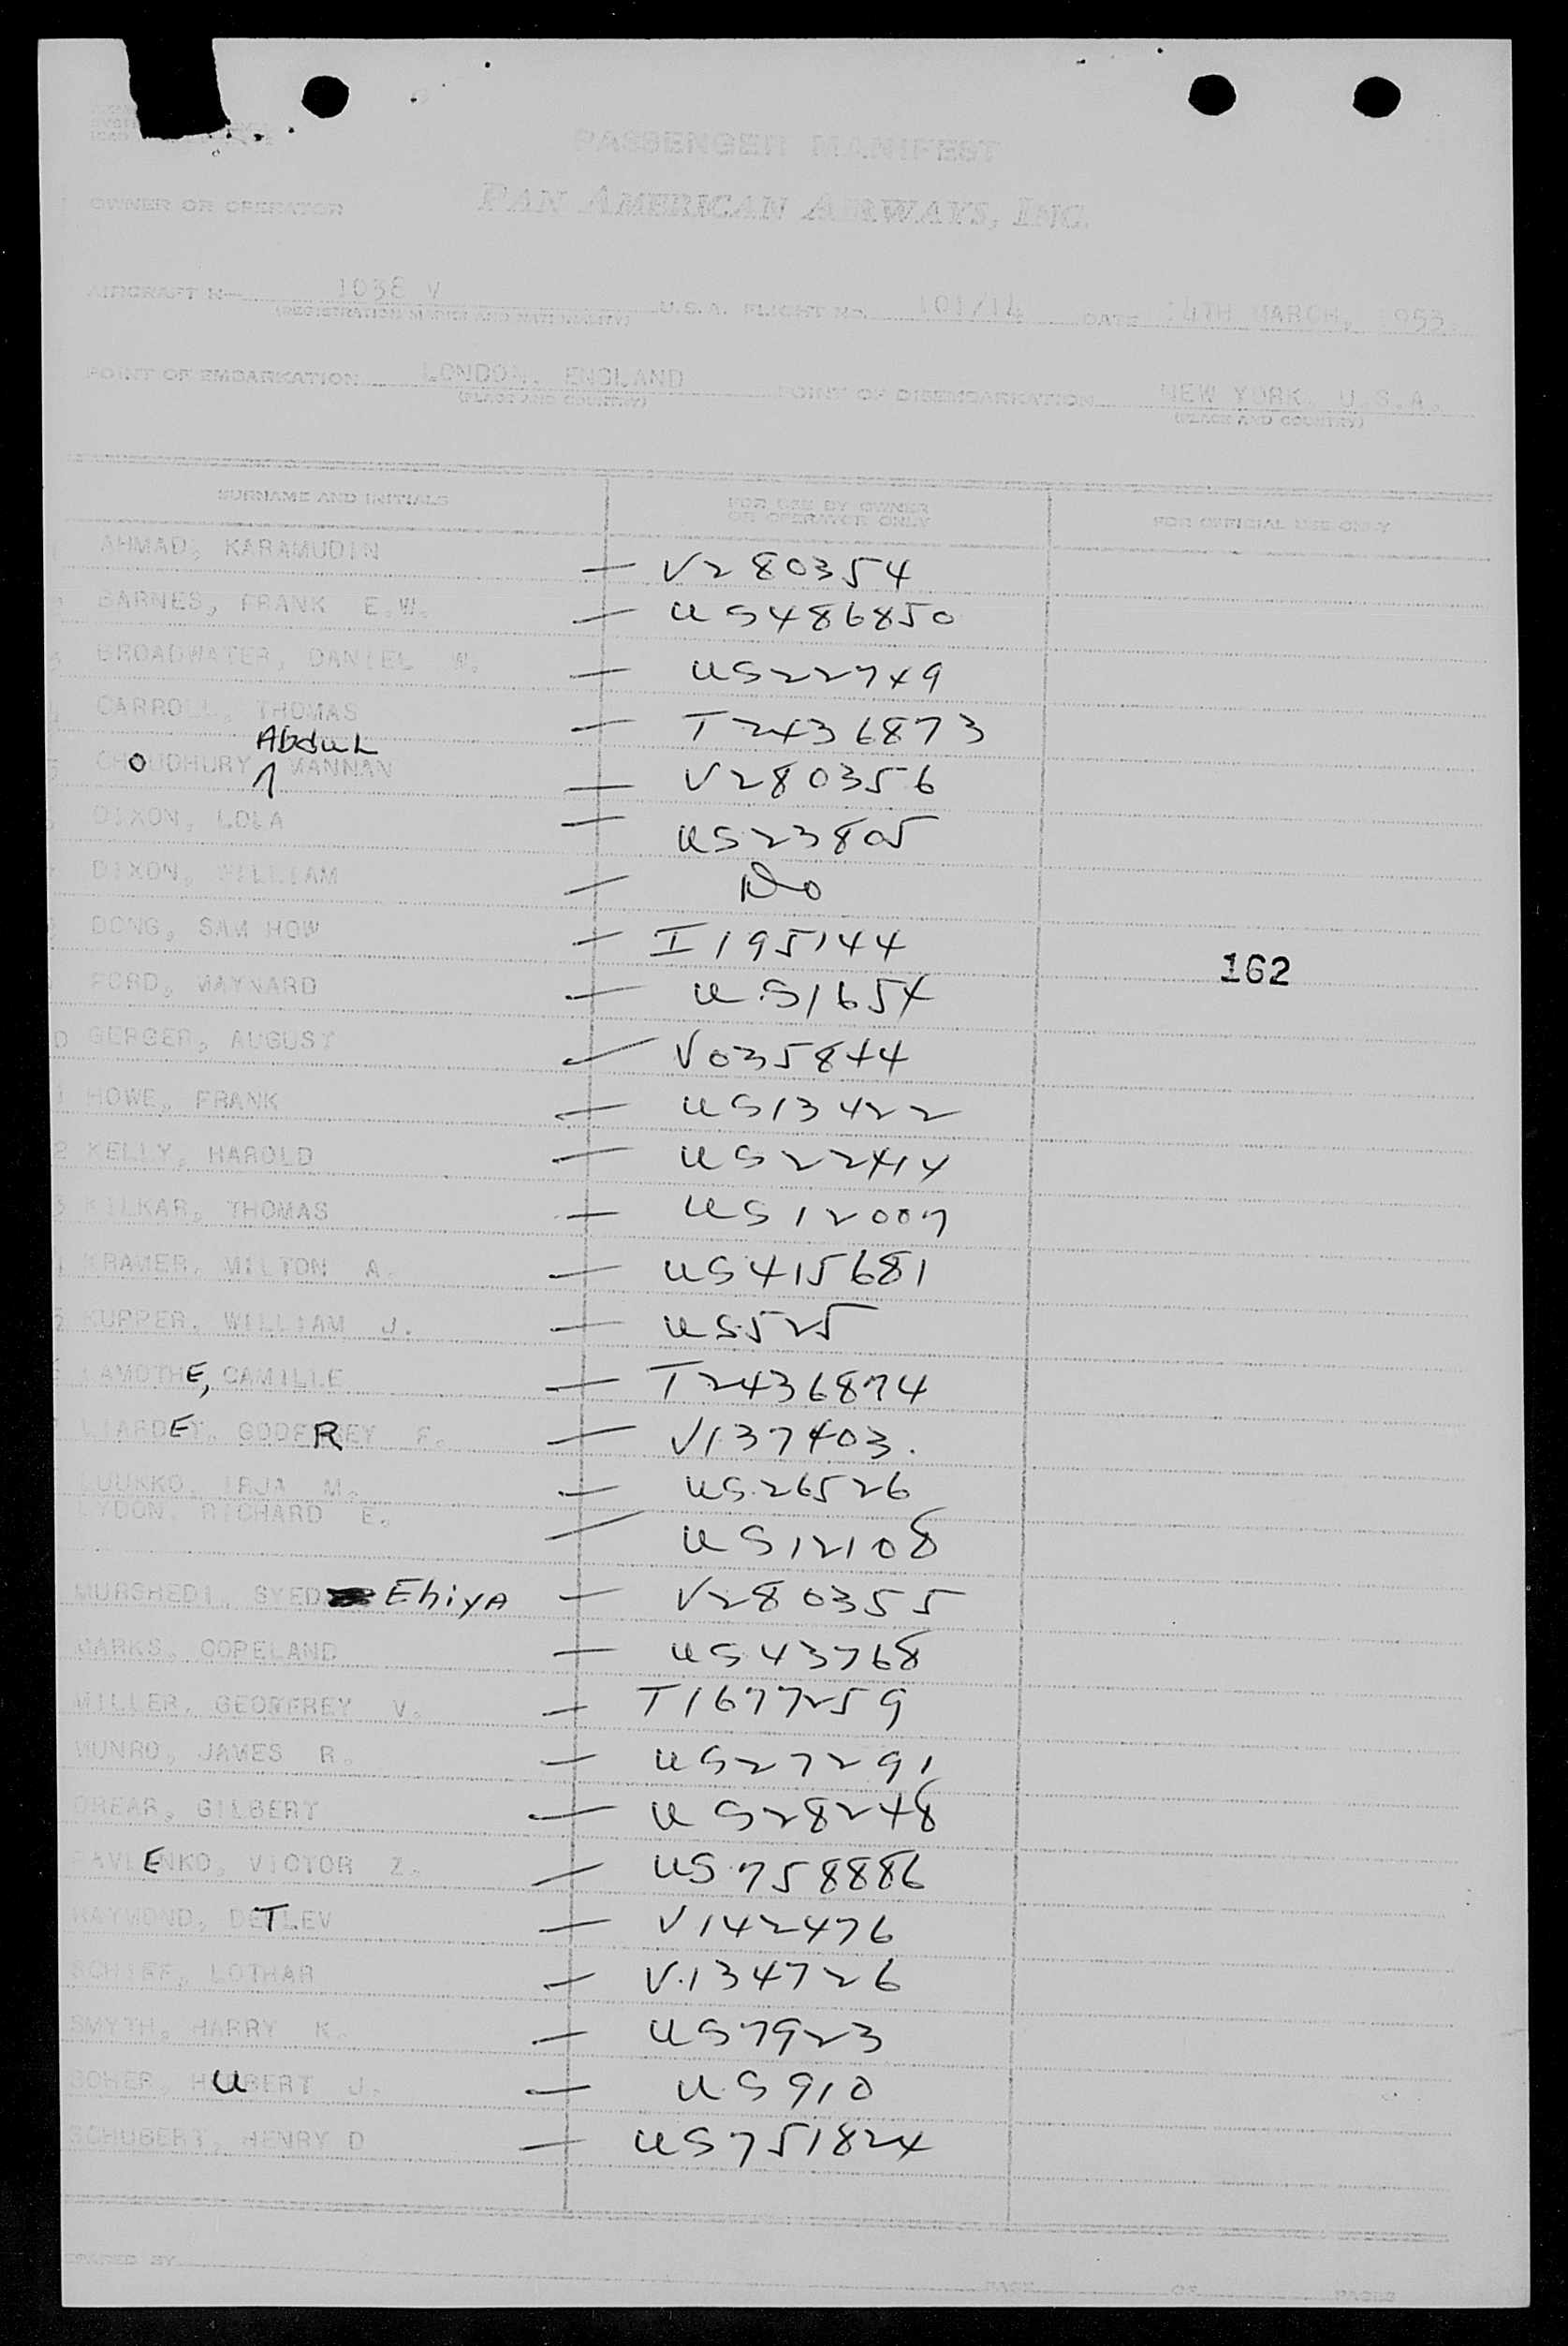 PASSENGER MANIFEST
OWNER OR OPERATOR PAN AMERICAN AIRWAYS, INC.
AIRCRAFT N— 1038 V U.S.A. FLIGHT NO. 101/14 DATE 14TH MARCH, 1953.
(REGISTRATION MARKS AND NATIONALITY)
POINT OF EMBARKATION LONDON, ENGLAND POINT OF DISEMBARKATION NEW YORK, U.S.A.
(PLACE AND COUNTRY) (PLACE AND COUNTRY)
SURNAME AND INITIALS FOR USE BY OWNER OR OPERATOR ONLY FOR OFFICIAL USE ONLY
AHMAD, KARAMUDIN — V280354
BARNES, FRANK E.W. — US486850
BROADWATER, DANIEL W. — US22749
CARROLL, THOMAS — T2436873
CHOUDHURY Abdul MANNAN — V280356
DIXON, LOLA — US23805
DIXON, WILLIAM — Do
DONG, SAM HOW — I195144
162
FORD, MAYNARD — US1654
GERGER, AUGUST — V035844
HOWE, FRANK — US13422
KELLY, HAROLD — US22414
KILKAR, THOMAS — US12007
KRAMER, MILTON A. — US415681
KUPPER, WILLIAM J. — US525
LAMOTHE, CAMILLE — T2436874
LIARDET, GODFREY F. — V137403.
LUUKKO, IRJA M. — US.26526
LYDON, RICHARD E. — US12108
MURSHEDI, SYED Ehiya — V280355
MARKS, COPELAND — US43768
MILLER, GEOFFREY V. — T1677259
MUNRO, JAMES R. — US27291
OREAR, GILBERT — US28248
PAVLENKO, VICTOR Z. — US.758886
RAYMOND, DETLEV — V142476
SCHIFF, LOTHAR — V.134726
SMYTH, HARRY K. — US7923
SOHER, HUBERT J. — US910
SCHUBERT, HENRY D — US751824
PREPARED BY PAGE OF PAGES